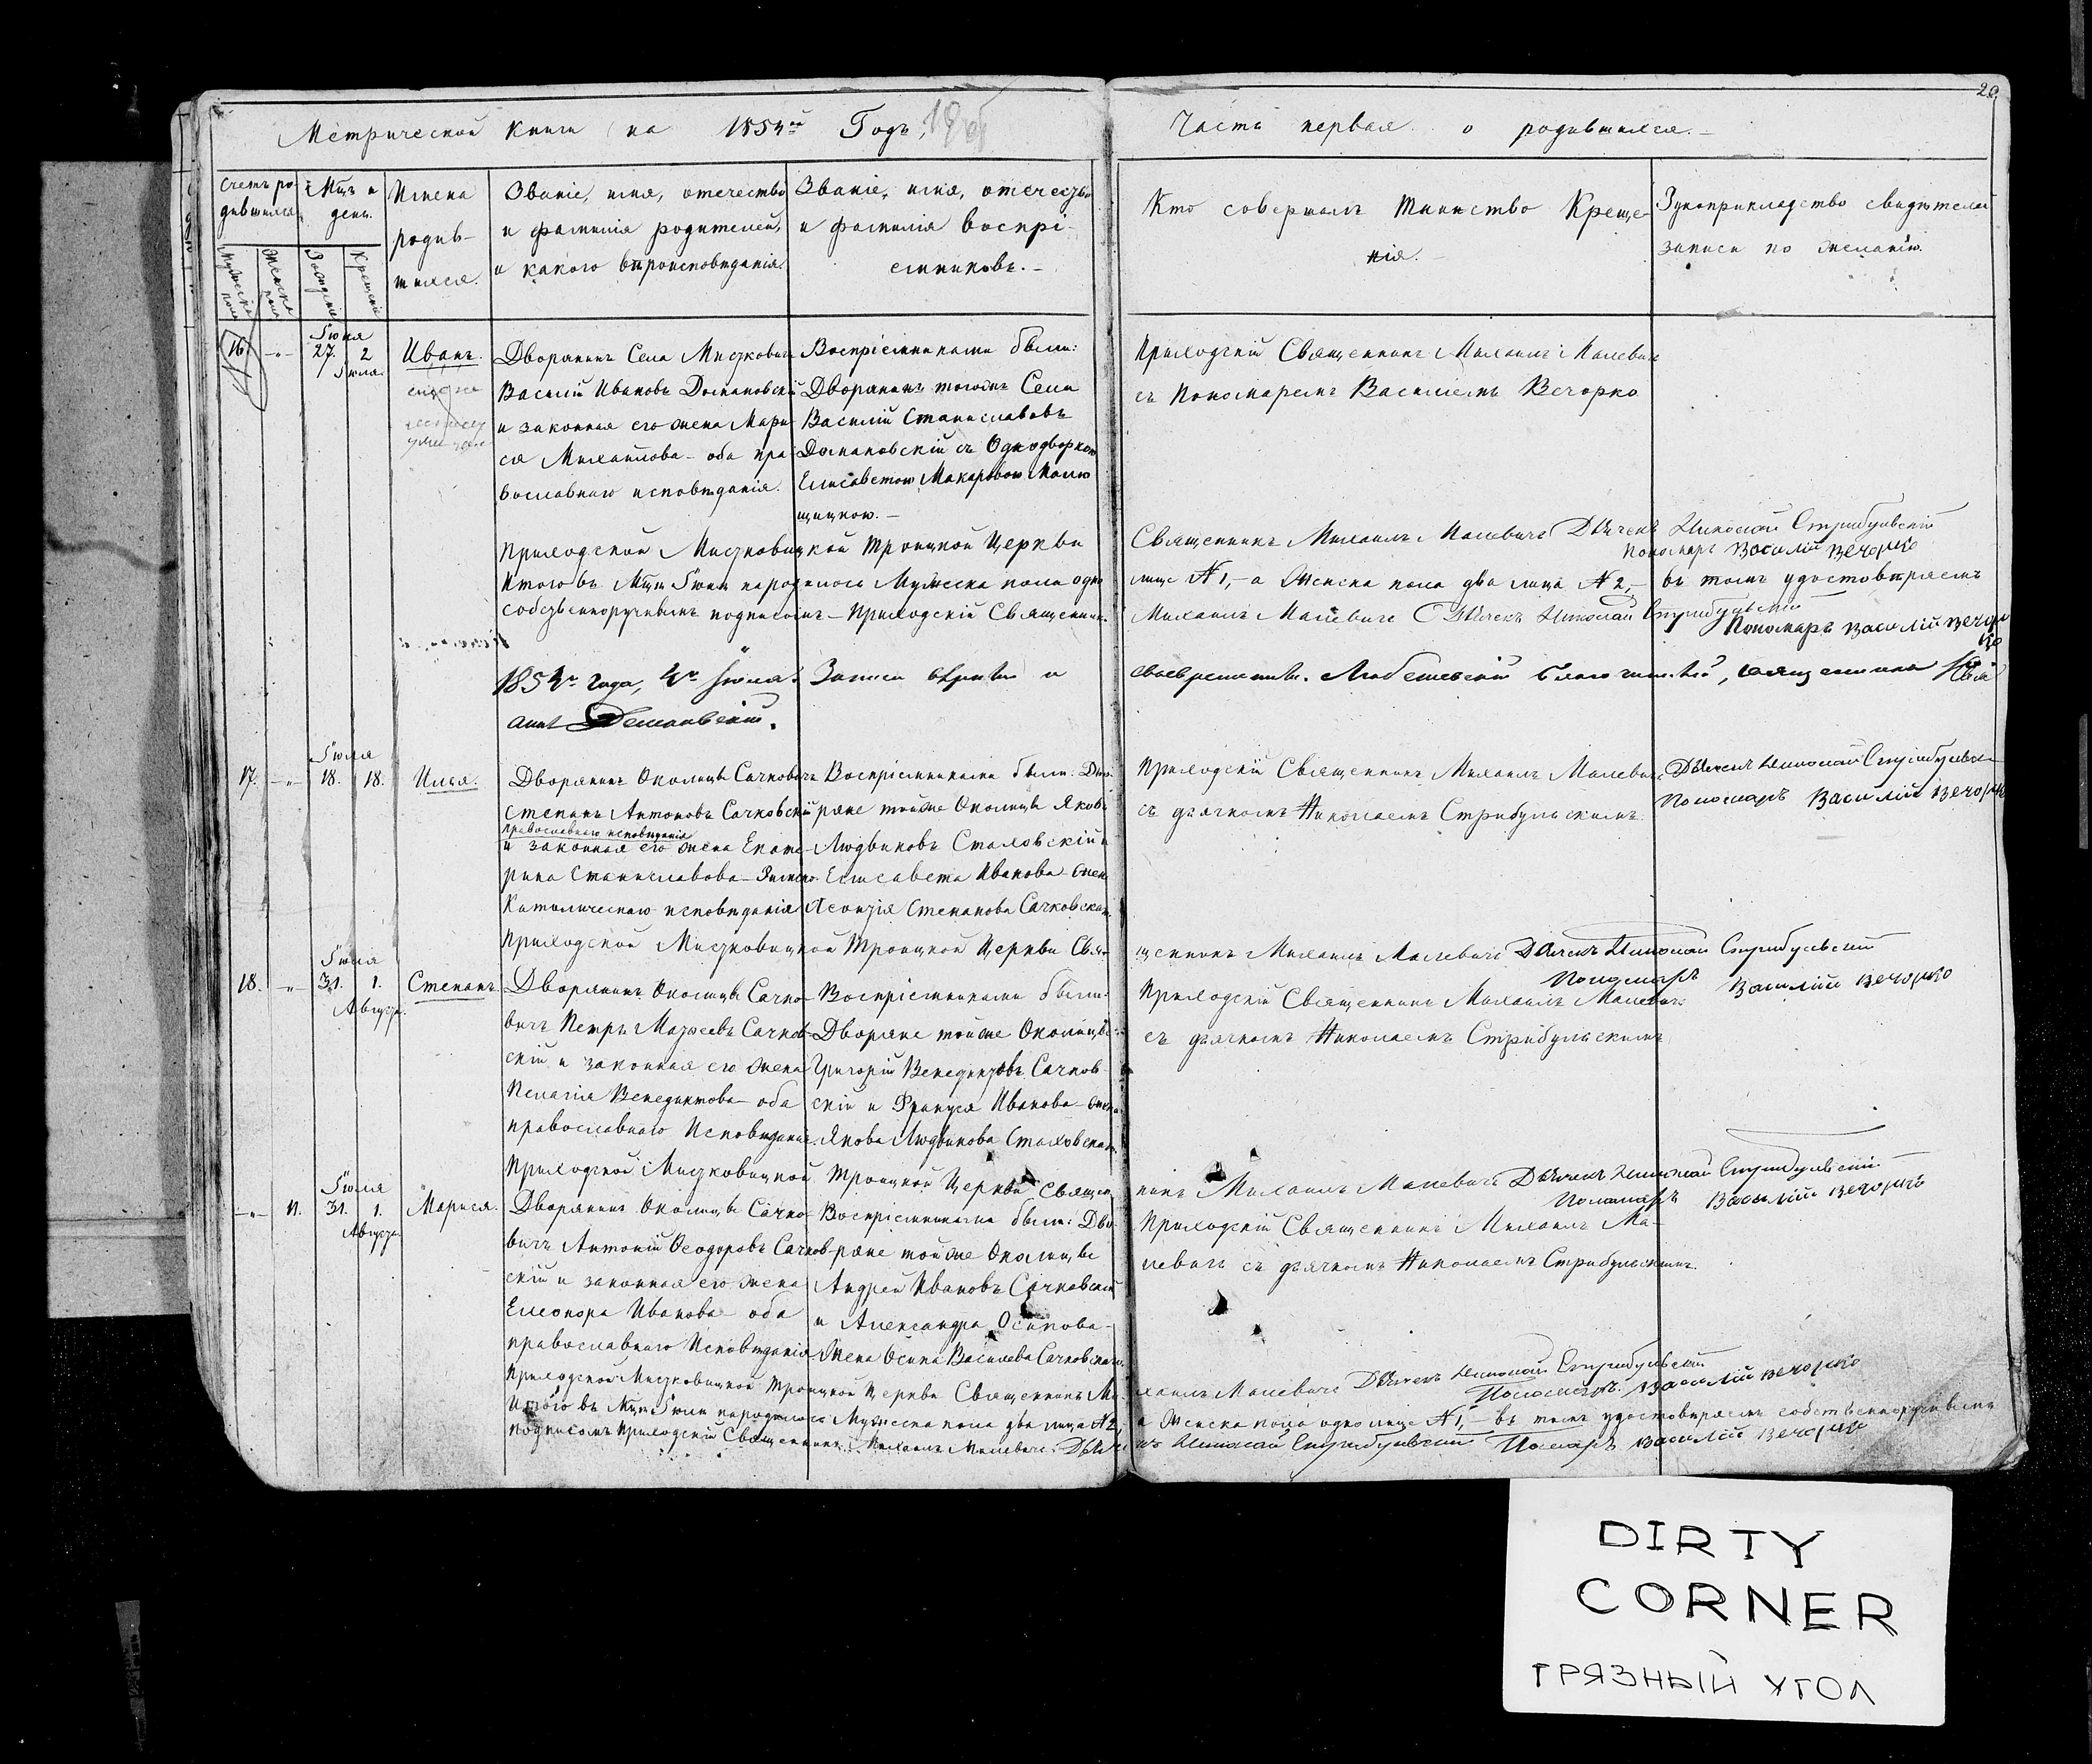 Метрической Книги на 1854й Годъ,
Часть первая о родившихся.
20
Счетъ ро-
дившихся
Мужеска пола
Женска пола
Мцъ и
день.
Рожденія
Крещенія
Имена
родив-
шихся.
Званіе, имя, отечество
и фамилія родителей,
и какого вѣроисповѣданія.
Званіе, имя, отечество
и фамилія воспрі-
емниковъ.
Кто совершалъ Таинство Креще-
нія.
Рукоприкладство свидѣтелей
записи по желанію.
16. Іюня 27. 2 Іюля. Иванъ.
Дворянинъ Села Мистковичь
Василій Ивановъ Домановскій
и законная его жена Мари-
ся Михайлова - оба пра-
вославнаго исповѣданія.
Воспріемниками были:
Дворянинъ тогожъ Села
Василій Станиславовъ
Домановскій съ Однодворкою
Елисаветою Макаровою
Приходскій Священникъ Михаилъ Малевичь
съ Пономаремъ Василіемъ Вечорко
Приходской Мистковицкой Троицкой Церкви
Священникъ Михаилъ Малевичь Дьячекъ Николай Стрибульскій
Пономарь Василій Вечорко
Итого въ Мцѣ Іюнѣ народилось Мужеска пола одно
лице №1,- а Женска пола два лица №2,- въ томъ удостовѣряемъ
собственноручнымъ подписомъ - Приходскій Священникъ
Михаилъ Малевичь Дьячекъ Николай Стрибульскій
Пономарь Василій Вечорко
1854го года, 4го Іюля. Записи вѣрны и
своевременны. Любешевскій Благочинный, священникъ
17. Іюля 18. 18. Илья.
Дворянинъ Околицы Сачковичь
Степанъ Антоновъ Сачковскій
православнаго исповѣданія
и законная его жена Екате-
рина Станиславова - Римско
Католическаго исповѣданія
Воспріемниками были: Дво-
ряне тойже Околицы Яковъ
Людвиковъ Стаховскій и
Елисавета Иванова - жена
Леонтія Степанова Сачковскаго
Приходскій Священникъ Михаилъ Малевичь
съ дьячкомъ Николаемъ Стрибульскимъ.
Дьячекъ Николай Стрибульскій
Пономарь Василій Вечорко
Приходской Мистковицкой Троицкой Церкви Свя-
щенникъ Михаилъ Малевичь Дьячекъ Николай Стрибульскій
Пономарь Василій Вечорко
18. Іюля 31. 1. Августа. Степанъ.
Дворянинъ Околицы Сачко-
вичь Петръ Матѳеевъ Сачков-
скій и законная его жена
Пелагія Венедиктова - оба
православнаго Исповѣданія.
Воспріемниками были:
Дворяне тойже Околицы:
Григорій Венедиктовъ Сачков-
скій и Франуся Иванова - жена
Якова Людвикова Стаховскаго.
Приходскій Священникъ Михаилъ Малевичь
съ дьячкомъ Николаемъ Стрибульскимъ
Приходской Мистковицкой Троицкой Церкви Священ-
никъ Михаилъ Малевичь Дьячекъ Николай Стрибульскій
Пономарь Василій Вечорко
11. Іюля 31. 1. Августа. Марися.
Дворянинъ Околицы Сачко-
вичь Антоній Ѳеодоровъ Сачков-
скій и законная его жена
Елеонора Иванова - оба
православнаго Исповѣданія
Воспріемниками были: Дво-
ряне тойже Околицы
Андрей Ивановъ Сачковскій
и Александра Осипова -
Жена Осипа Василева Сачковскаго.
Приходскій Священникъ Михаилъ Ма-
левичь съ дьячкомъ Николаемъ Стрибульскимъ.
Приходской Мистковицкой Троицкой Церкви Священникъ Ми-
хаилъ Малевичь Дьячекъ Николай Стрибульскій
Пономарь Василій Вечорко
Итого въ Мцѣ Іюлѣ народилось Мужеска пола два лица №2,
а Женска пола одно лице №1,- въ томъ удостовѣряемъ собственноручнымъ
подписомъ Приходскій Священникъ Михаилъ Малевичь Дьяче-
къ Николай Стрибульскій Пономарь Василій Вечорко
DIRTY
CORNER
ГРЯЗНЫЙ УГОЛ